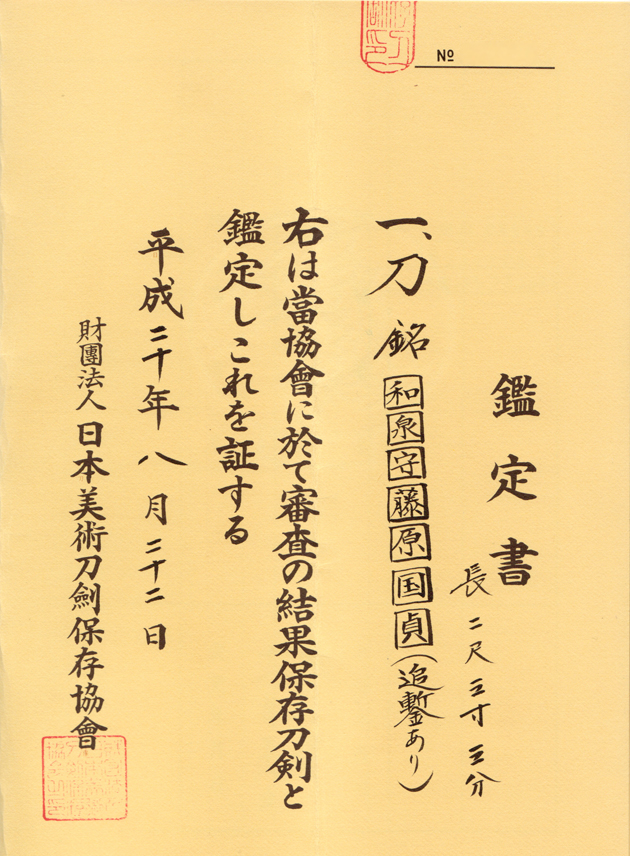 №
鑑定書
長二尺三寸三分
一、刀 銘 和泉守藤原国貞(追鏨あり)
右は當協會に於て審査の結果保存刀剣と
鑑定しこれを証する
平成二十年八月二十二日
財團法人日本美術刀劍保存協會